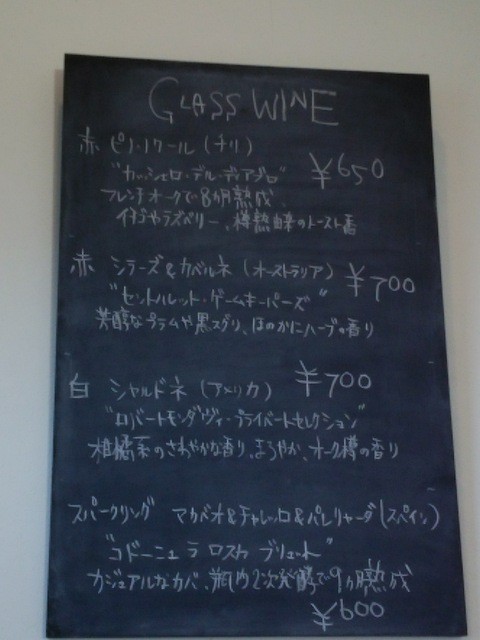 GLASS WINE
赤 ピノ・ノワール (チリ)
"カッシェロ・デル・ディアブロ" ¥650
フレンチオークで8ヵ月熟成、
イチゴやラズベリー、樽熟由来のトースト香
赤 シラーズ&カベルネ (オーストラリア) ¥700
"セントハレット・ゲームキーパーズ"
芳醇なプラムや黒スグリ、ほのかにハーブの香り
白 シャルドネ (アメリカ) ¥700
"ロバートモンダヴィ・プライベートセレクション"
柑橘系のさわやかな香り、まろやか、オーク樽の香り
スパークリング マカベオ&チャレッロ&パレリャーダ (スペイン)
"コドーニュ ラ ロスカ ブリュット"
カジュアルなカバ、瓶内2次発酵で9ヵ月熟成
¥600